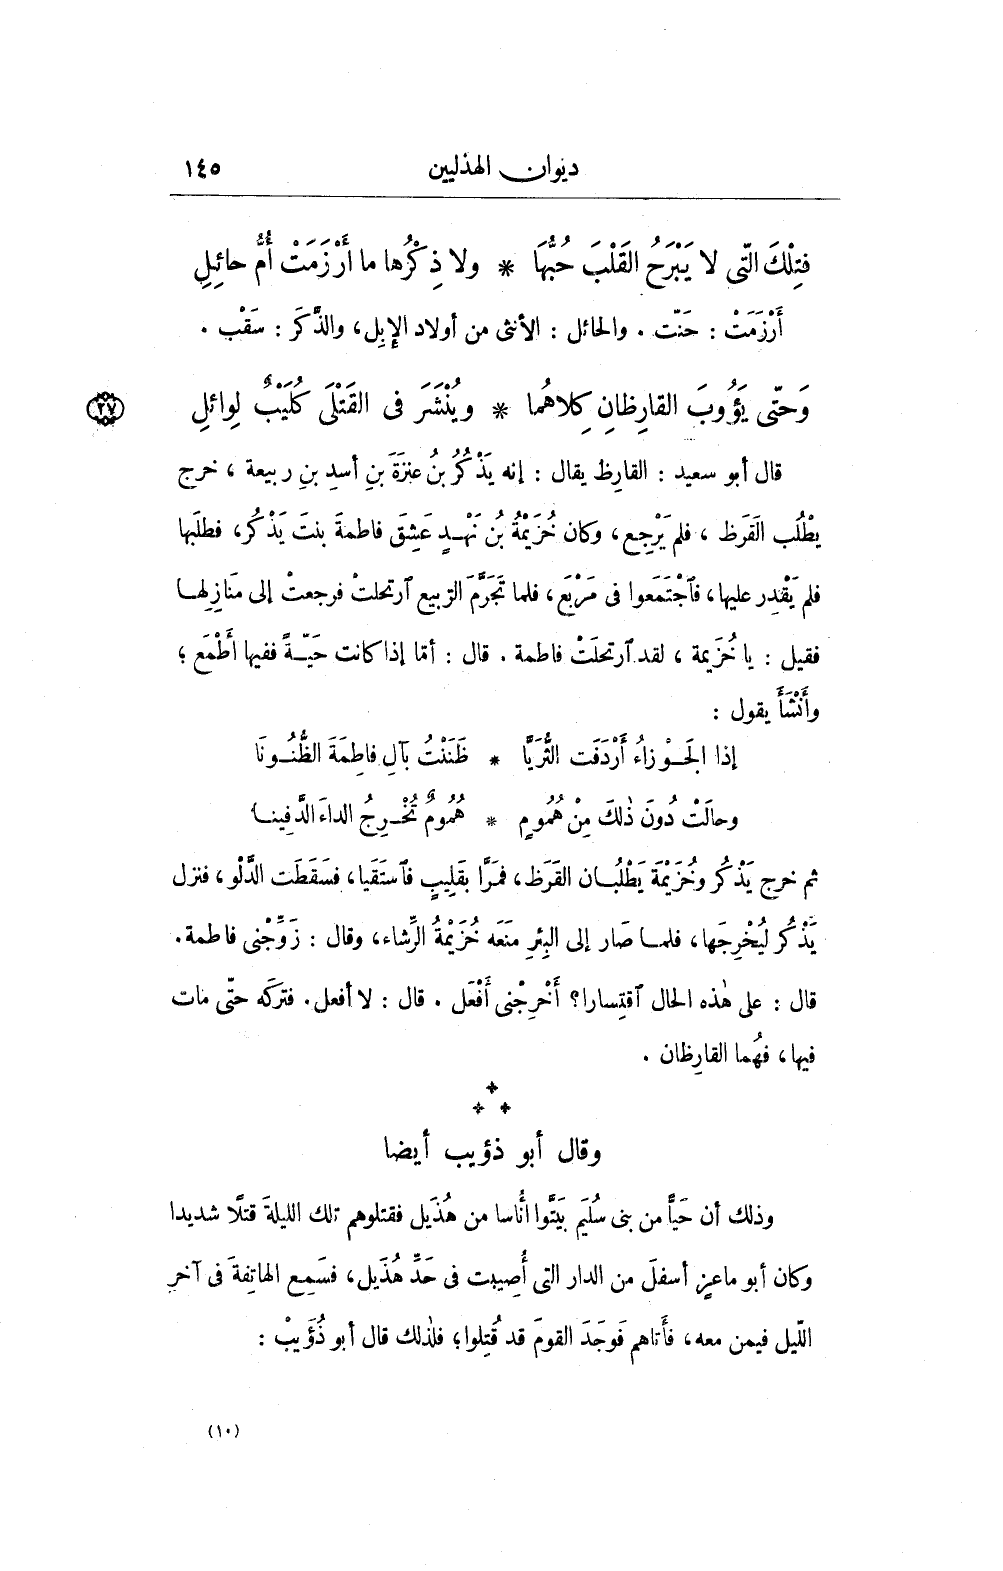 ديوان الهذليين ١٤٥
فَتِلْكَ الّتى لا يَبْرَحُ القَلْبَ حُبُّهَا * ولا ذِكْرُها ما أَرْزَمَتْ أُمُّ حائِلِ
أَرْزَمَتْ : حَنّت . والحائل : الأنثى من أولاد الإبِل، والذَّكَر : سَقْب .
وَحَتّى يَؤُوبَ القارِظانِ كِلاهُما * ويُنْشَرَ فى القَتْلَى كُلَيْبٌ لِوائلِ
٢٧
قال أبو سعيد : القارِظ يقال : إنه يَذْكُرُ بنُ عنَزَةَ بنِ أسدِ بنِ ربيعة ، خرج
يطْلُب القَرَظ ، فلم يَرْجِع، وكان خُزَيْمةُ بُن نَهْدٍ عَشِقَ فاطمةَ بنتَ يَذْكُر، فطلَبها
فلم يَقْدِر عليها، فٱجْتَمَعوا فى مَرْبَع، فلما تَجَرَّمَ الرّبيع ٱرتحلتْ فرجعتْ إلى مَنازِلِها
فقيل : يا خُزَيمة ، لقد ٱرتحلَتْ فاطمة . قال : أمّا إذا كانت حَيّةً ففيها أَطْمَع ؛
وأَنْشَأَ يقول :
إذا الجَوْزاءُ أَرْدَفَت الثُّرَيَّا * ظَنَنْتُ بآلِ فاطِمَةَ الظُّنُونَا
وحالَتْ دُونَ ذٰلكَ مِنْ هُمُومٍ * هُمُومٌ تُخْرِجُ الداءَ الدَّفِينا
ثم خرج يَذْكُر وخُزَيْمَة يَطْلُبان القَرَظ، فمَرَّا بقَلِيبٍ فٱستَقَيا، فسَقَطَت الدَّلْو، فنزل
يَذْكُر لُيخْرِجَها، فلما صَار إلى البِئرِ مَنَعَه خُزَيْمةُ الرِّشاء، وقال : زَوِّجْنى فاطمة.
قال : على هٰذه الحال ٱقتِسارا؟ أَخْرِجْنى أَفْعَل . قال : لا أفعل. فتركَه حتّى مات
فيها، فهُما القارِظان .
وقال أبو ذؤيب أيضا
وذلك أن حَيًّا من بنى سُلَيَم بَيَّتُوا أُناسا من هُذَيل فقتلوهم تلك الليلةَ قتلًا شديدا
وكان أبو ماعِزٍ أسفلَ من الدار التى أُصِيبت فى حَدِّ هُذَيل، فسَمِع الهاتِفةَ فى آخرِ
اللّيل فيمن معه، فأتاهم فَوجَدَ القومَ قد قُتِلوا؛ فلذٰلك قال أبو ذُؤَيبْ :
(١٠)